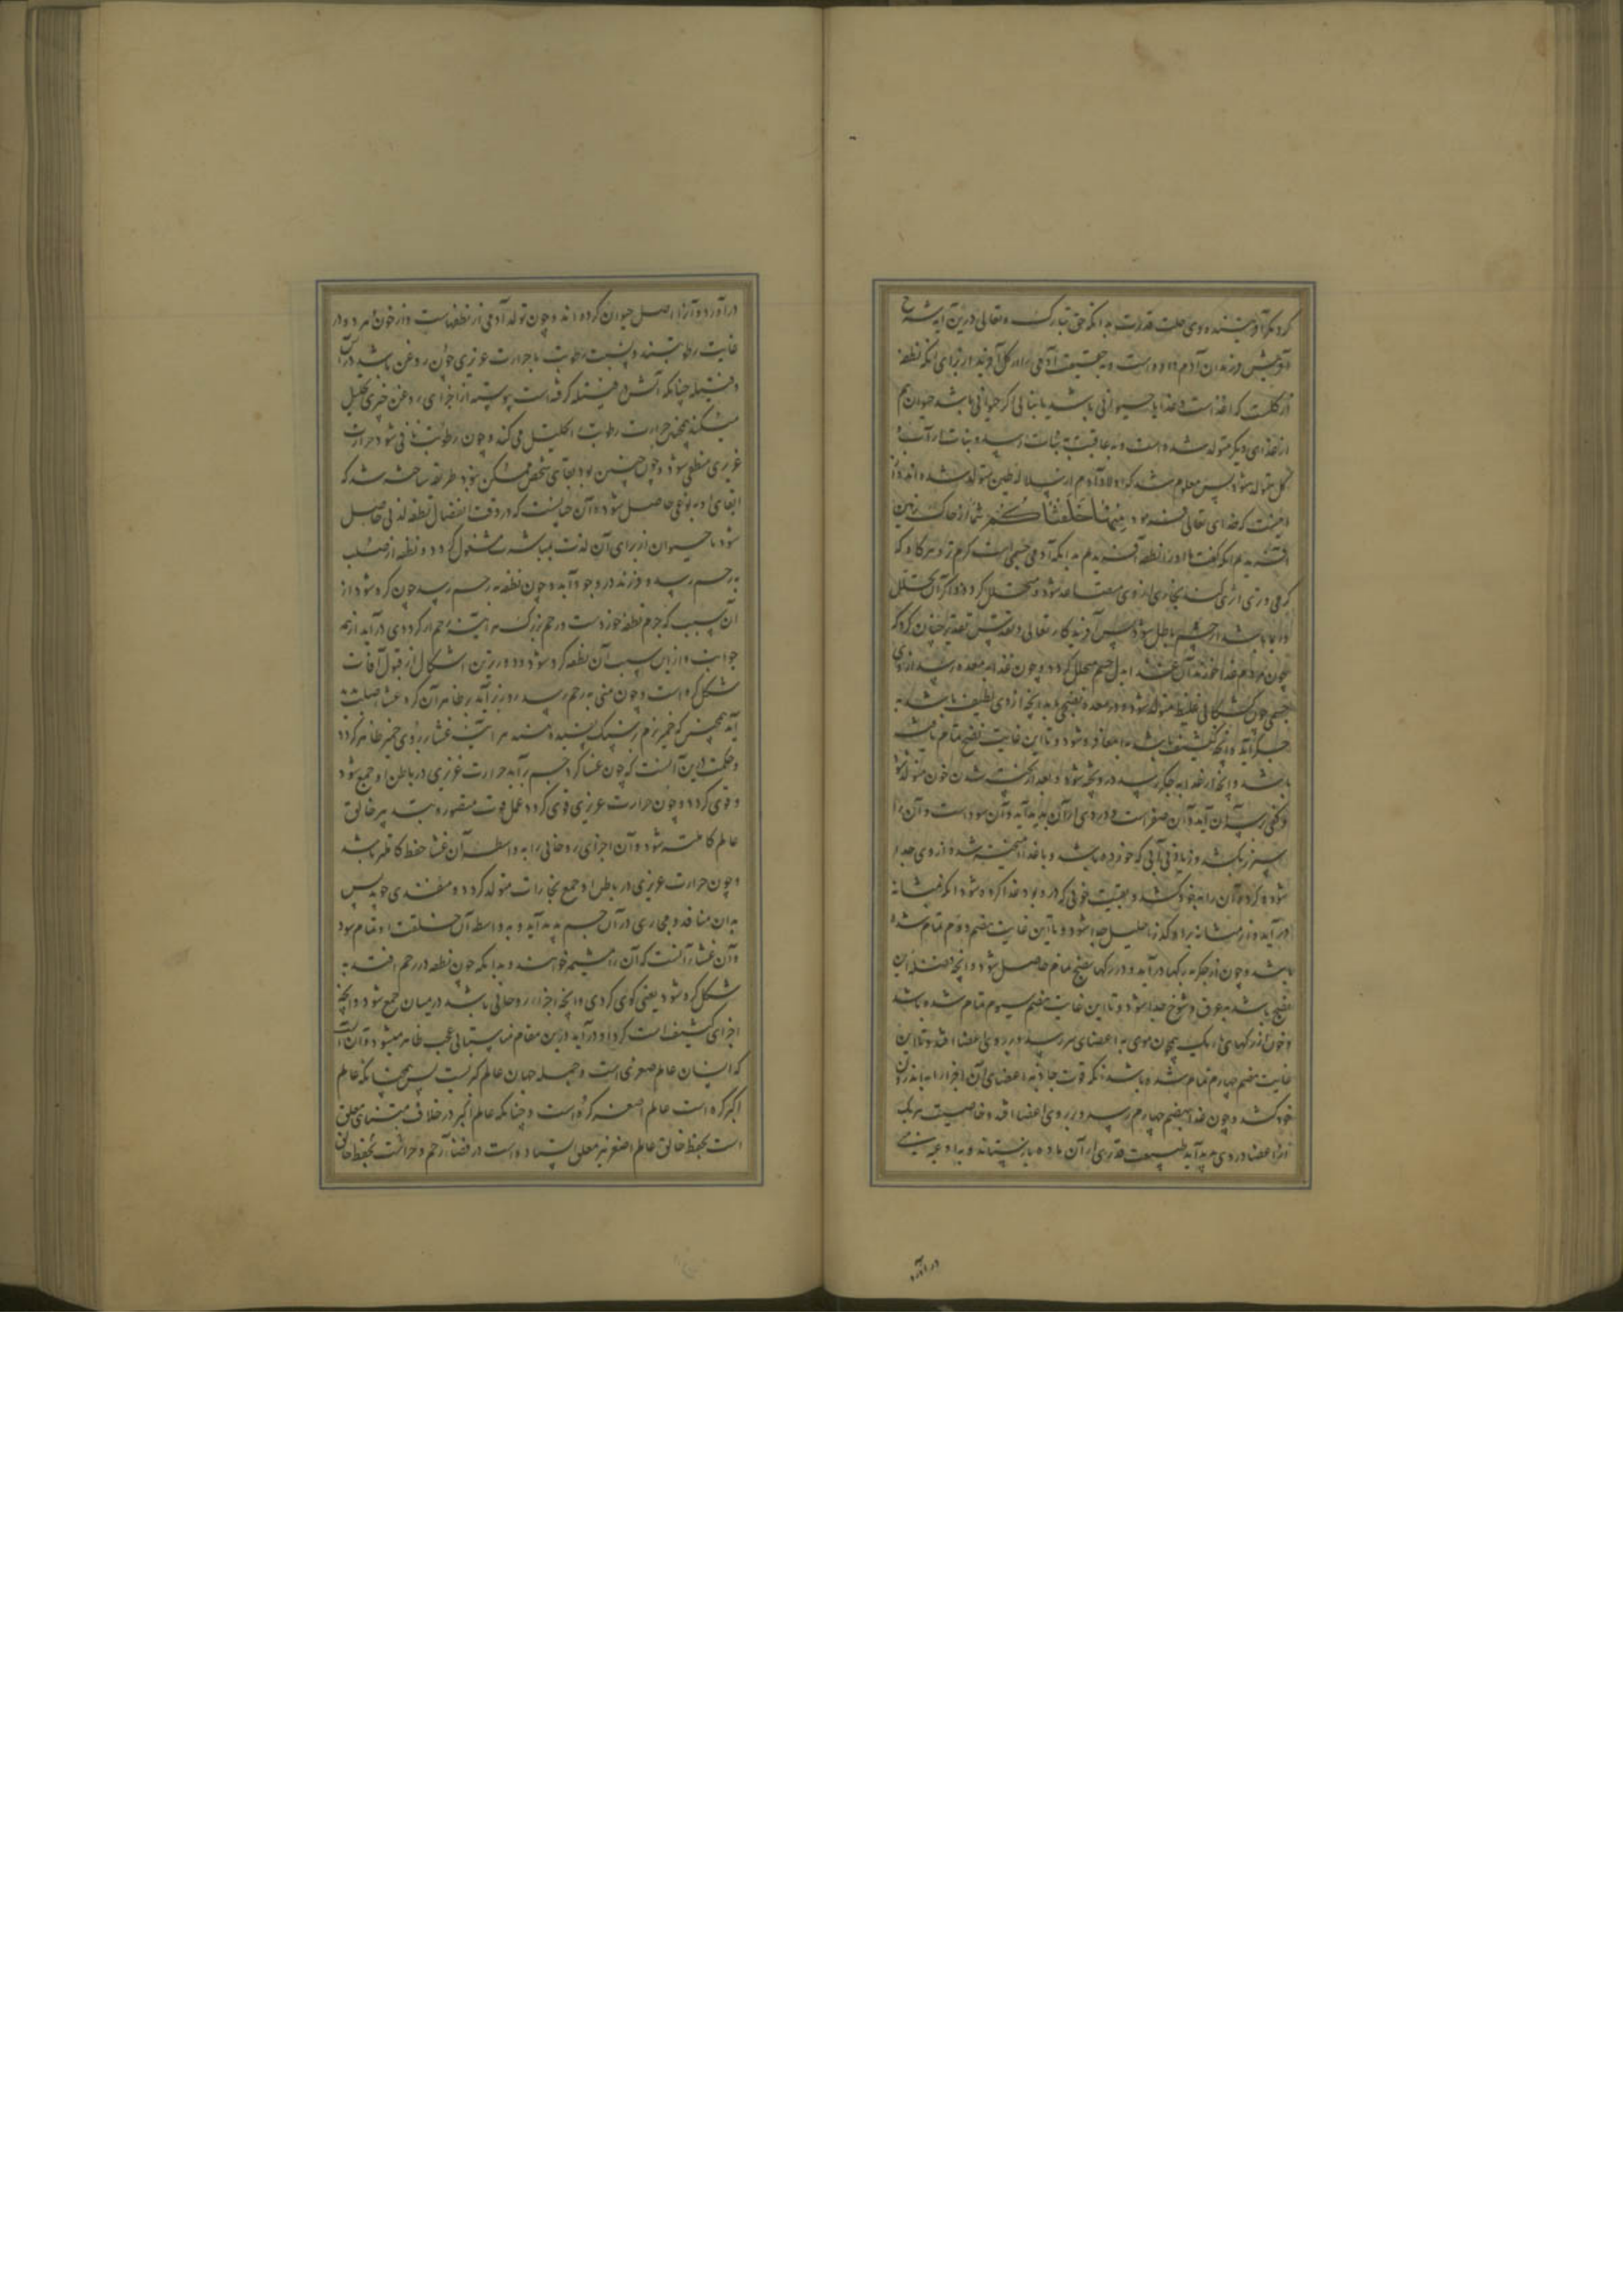 کرد مکر آفریننده وی جلت قدرته بدانکه حق تبارک و تعالی درین آیه شرح
آفرینش فرزندان آدم داده است و به حقیقت آدمی را از کل آفریند از برای آنکه نطفه
از کلست که از غذاست و غذا یا حیوانی باشد یا نباتی اگر حیوانی باشد حیوان هم
از غذای دیگر متولد شده است و به عاقبت به نبات رسد و نبات از آب و
کل متولد شود پس معلوم شد که اولاد آدم از سلاله طین متولد شده اند و از
اینست که خدای تعالی فرمود مِنْهَا خَلَقْنَاكُمْ شما را از خاک زمین
آفریدیم آنکه گفت ما او را از نطفه آفریدیم بدانکه آدمی جسمی است گرم و تر و هر گاه که
گرمی در تری اثر کند بخاری از وی متصاعد شود و متحلل گردد و اگر آن تحلل
دایما باشد آن جسم باطل شود پس آفریدگار تعالی و تقدس تقدیر چنان کرد که
چون مردم غذا خورند آن غذا بدل جسم متحلل گردد و چون غذا به معده رسد از وی
جسمی چون کشکابی غلیظ متولد شود و در معده نضجی یابد و آنچه از وی لطیف باشد به
جگر آید و آنچه کثیف باشد به امعا فرو شود و تا این غایت نضج تمام نایافته
باشد و آنچه از غذا به جگر رسد در وی پخته شود و بعد از پخته شدن خون متولد شود
و کفی بر سر آن آید و آن صفراست و دردی از آن پدید آید و آن سوداست و آن را
سپرز بکشد و باقی آبی که خورده باشد و با غذا آمیخته شده از وی جدا
شود و گرده آن را به خود کشد و بقیت خونی که در او بود غذا گرده شود آنگه به مثانه
در آید و از مثانه به راه گذر احلیل جدا شود و تا این غایت هضم دوم تمام شده
باشد و چون از جگر به رگها در آید و در رگها نضج تمام حاصل شود و آنچه فضله این
نضج باشد به عرق و شوخ جدا شود و تا این غایت هضم سیوم تمام شده باشد
و خون از رگهای باریک همچون موی به اعضای مر رسد و بر روی اعضا افتد و تا این
غایت هضم چهارم تمام شده باشد آنکه قوت جاذبه اعضای آن اجزا را به اندرون
خود کشد و چون غذا به هضم چهارم رسد و بر روی اعضا افتد و خاصیت هر یک
از اعضا در وی پدید آید طبیعت قدری از آن ماده باز ستاند و به اوعیه منی
در آورد
در آورد و آن را اصل حیوان کرده اند و چون تولد آدمی از نطفه است و از خون و هر دو در
غایت رطوبتند و نسبت رطوبت با حرارت غریزی چون روغن باشد در آتش
و فتیله چنانکه آتش در فتیله گرفته است پیوسته از اجزای روغن چیزی تحلیل
میکند همچنین حرارت رطوبت را تحلیل می کند و چون رطوبت فانی شود حرارت
غریزی منطفی شود و چون چنین بود بقای شخص ممکن نبود طریقه ساخته شد که
ابقای او به نوعی حاصل شود و آن چنانست که در وقت انفصال نطفه لذتی حاصل
شود تا حیوان از برای آن لذت به مباشرت مشغول گردد و نطفه از صلب
به رحم رسد و فرزند در وجود آید و چون نطفه به رحم رسد چون کره شود از
آن سبب که جرم نطفه خردست و رحم بزرگ هر آینه رحم از گرد وی در آید از همه
جوانب و از این سبب آن نطفه کره شود و دورترین اشکال از قبول آفات
شکل کره است و چون منی به رحم رسد و زبر آید بر ظاهر آن کره غشا صلب بدید
آید همچنین که خمیر نرم بر سنگ تفسیده نهند هر آینه غشا بر روی خمیر ظاهر گردد
و حکمت در این آنست که چون غشا گرد جسم بر آید حرارت غریزی در باطن او جمع شود
و قوی گردد و چون حرارت غریزی قوی گردد عمل قوت مصوره به تدبیر خالق
عالم کاملتر شود و آن اجزای روحانی را به واسطه آن غشا حفظ کاملتر باشد
و چون حرارت غریزی در باطن او جمع بخارات متولد گردد و منفذی جوید پس
بدان منافذ و مجاری در آن جسم پدید آید و به واسطه آن خلقت او تمام شود
و آن غشا آنست که آن را مشیمه خوانند و بدانکه چون نطفه در رحم افتد به
شکل کره شود یعنی گوی گردی و آنچه اجزاء روحانی باشد در میان جمع شود و آنچه
اجزای کثیف است گرد او در آید درین مقام مناسبتهایی عجب ظاهر میشود و آن آنست
که انسان عالم صغری است و جمله جهان عالم کبریست پس همچنانکه عالم
اکبر کره است عالم اصغر کره است و چنانکه عالم اکبر در خلاف متناهی معلق
است به حفظ خالق عالم اصغر نیز معلق ایستاده است در فضاء رحم و حراست به حفظ خالق